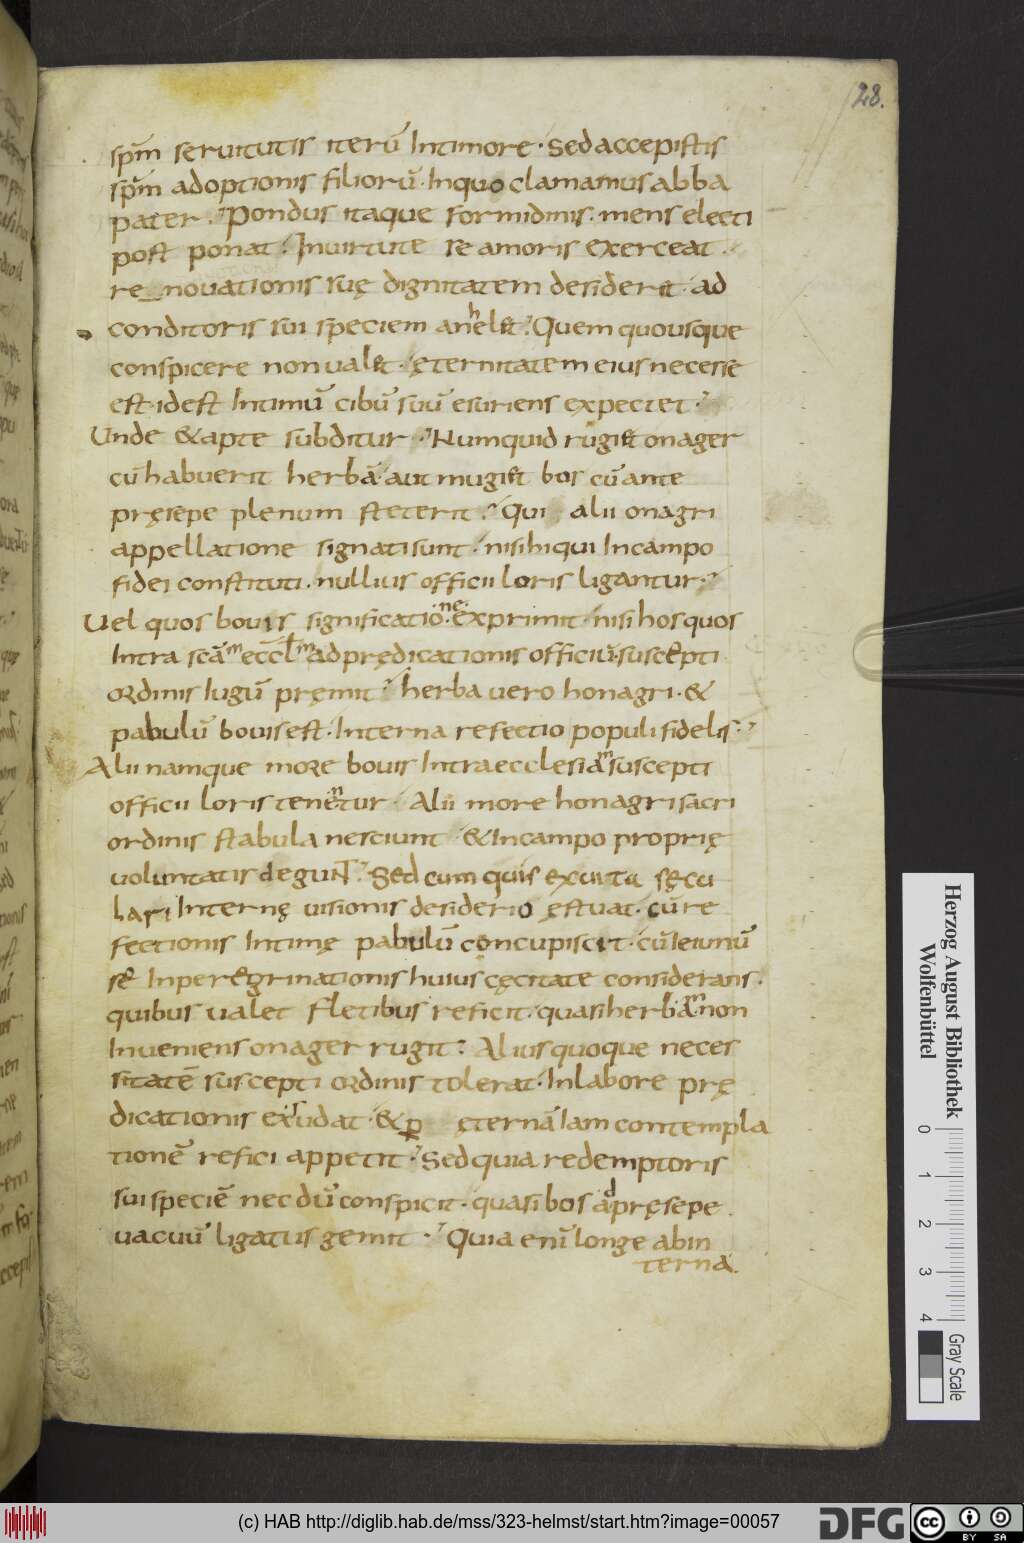 28.
sp̄m seruitutis iterū Intimore · Sed accepistis
sp̄m adoptionis filiorū · Inquo clamamus abba
pater · Pondus itaque formidinis · mens electi
post ponat · Inuirtute se amoris exerceat ·
re_nouationis suę dignitatem desideret · ad
conditoris sui speciem anhelet · Quem quousque
conspicere non ualet · ęternitatem eius necesse
est · idest Intimū cibū suū esuriens expectet ·
Unde & apte subditur · Numquid rugiet onager
cū habuerit herbā · aut mugiet bos cū ante
pręsepe plenum steterit · Qui alii onagri
appellatione signati sunt · nisi hi qui Incampo
fidei constituti · nullius officii loris ligantur ·
Uel quos bouis significatione · exprimit · nisi hos quos
Intra scām eccłm ad prędicationis officiū · suscepti
ordinis Iugū pręmit · herba uero honagri · &
pabulū bouis est · Interna refectio populi fidelis ·
Alii namque more bouis Intra ecclesiam suscepti
officii loris tenentur · Alii more honagri sacri
ordinis stabula nesciunt · & Incampo proprię
uoluntatis deguNT · Sed cum quis exuita sęcu
lari Internę uisionis desiderio ęstuat · cū re
fectionis Intimę pabulū concupiscit · cū Ieiunū
se Inperegrinationis huius cęcitate considerans ·
quibus ualet fletibus reficit · quasi herbām non
Inueniens onager rugit · Alius quoque neces
sitatē suscepti ordinis tolerat · Inlabore prę
dicationis exsudat · & ꝑ ęternā Iam contempla
tionē refici appetit · Sed quia redemptoris
sui speciē nec dū conspicit · quasi bos ad pręsepe
uacuū ligatus gemit · Quia enī longe abin
terna ·
Herzog August Bibliothek
Wolfenbüttel
0 1 2 3 4
Gray Scale
(c) HAB http://diglib.hab.de/mss/323-helmst/start.htm?image=00057
DFG
cc BY SA